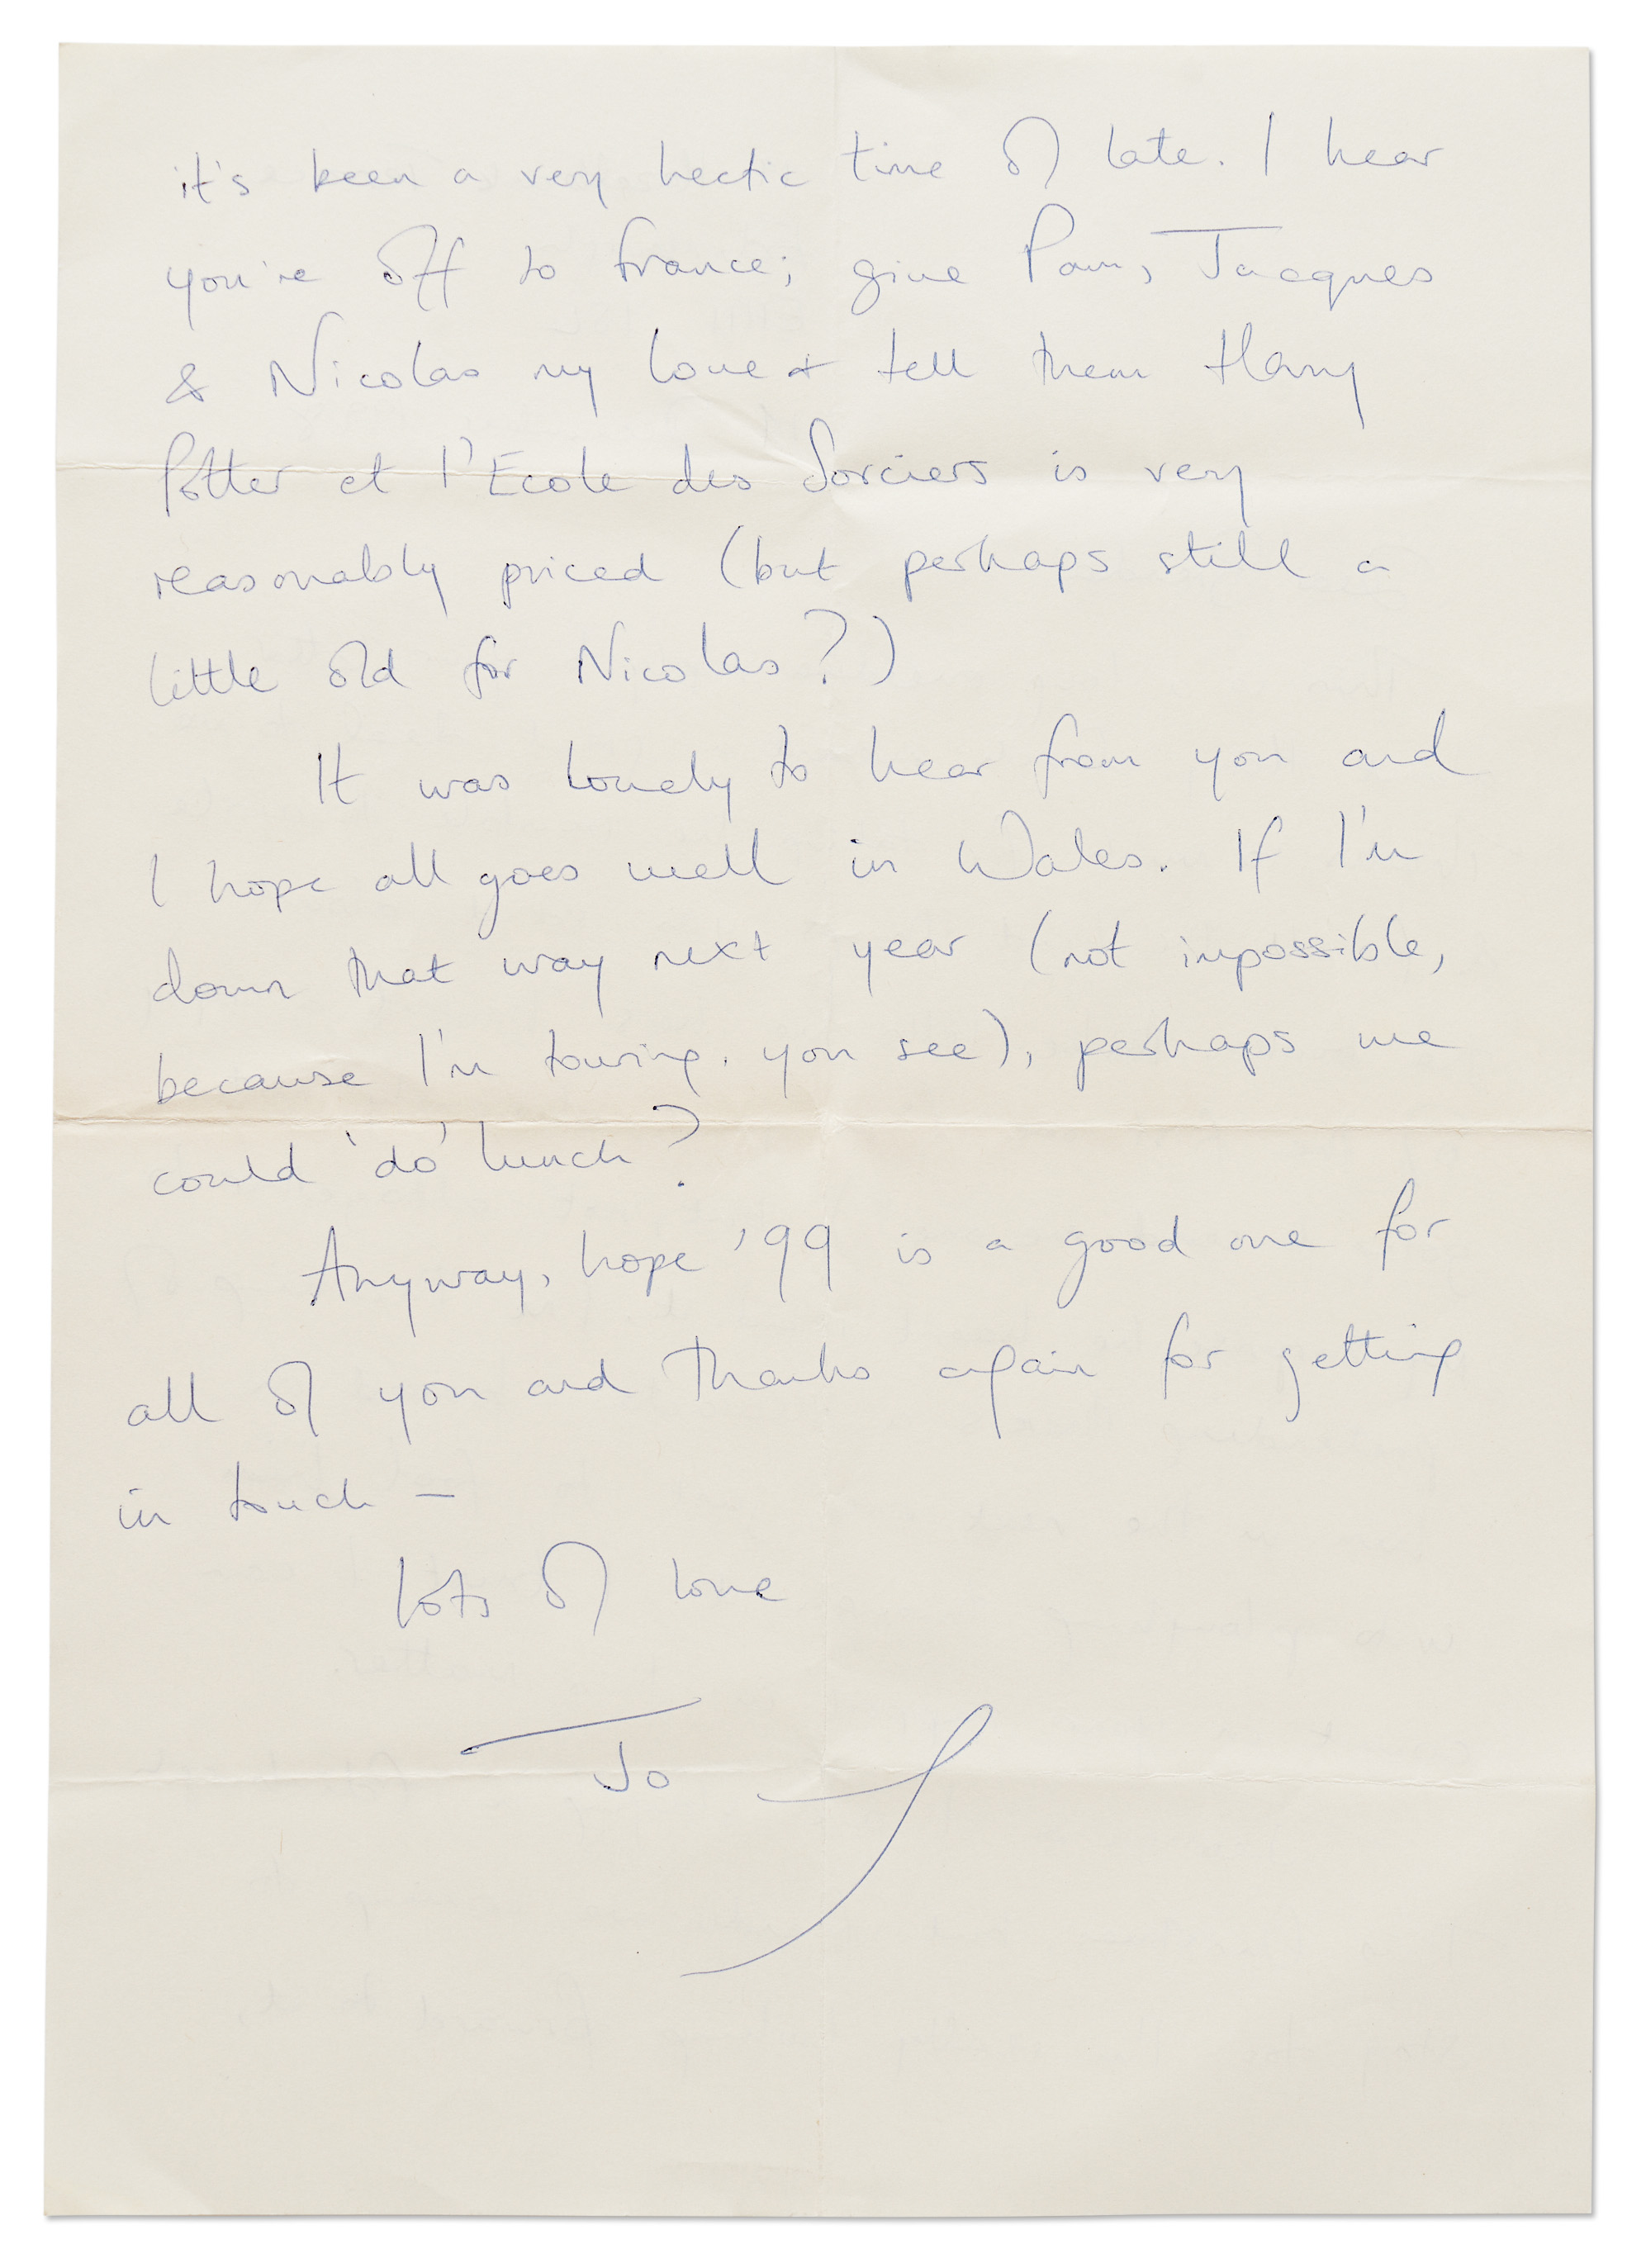 it's been a very hectic time of late. I hear
you're off to France; give Pam, Jacques
& Nicolas my love & tell them Harry
Potter et l'Ecole des Sorciers is very
reasonably priced (but perhaps still a
little old for Nicolas?)
It was lovely to hear from you and
I hope all goes well in Wales. If I'm
down that way next year (not impossible,
because I'm touring, you see), perhaps we
could 'do' lunch?
Anyway, hope '99 is a good one for
all of you and thanks again for getting
in touch –
Lots of love
Jo